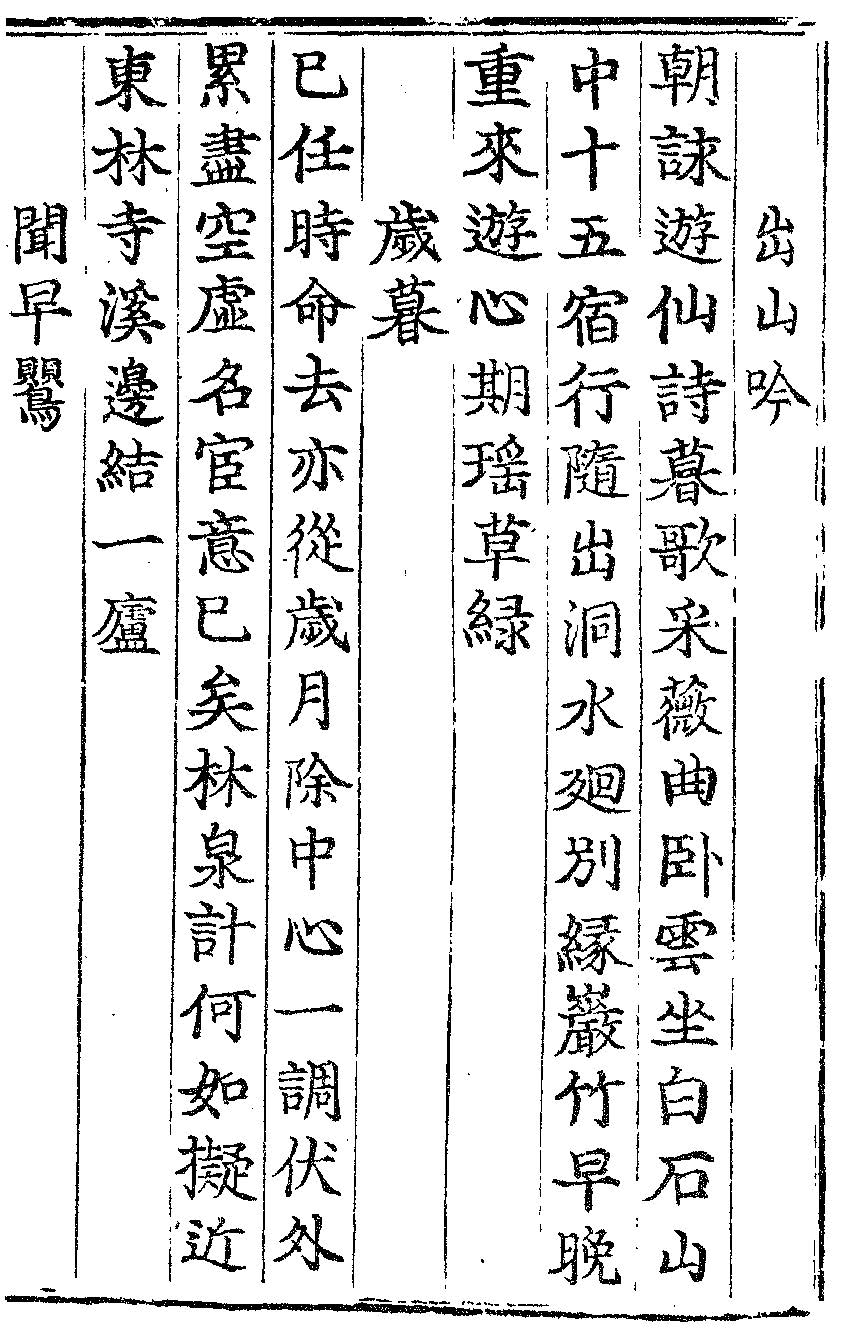 出山吟
朝詠遊仙詩暮歌采薇曲卧雲坐白石山
中十五宿行隨出洞水廻別緣巖竹早晚
重來遊心期瑶草緑
歲暮
已任時命去亦從歲月除中心一調伏外
累盡空虛名宦意已矣林泉計何如擬近
東林寺溪邊結一廬
聞早鸎